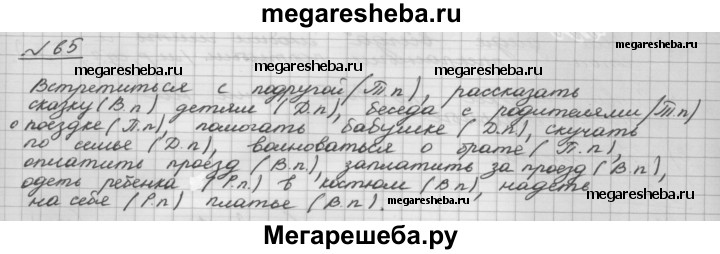 megaresheba.ru
№ 65
megaresheba.ru megaresheba.ru
Встретиться с подругой (Т.п), рассказать
сказку (В.п) детям (Д.п), беседа с родителями (Т.п)
о поездке (П.п), помогать бабушке (Д.п), скучать
по семье (Д.п), волноваться о брате (П.п),
оплатить проезд (В.п), заплатить за проезд (В.п),
одеть ребенка (Р.п) в костюм (В.п), надеть
на себя (Р.п) платье (В.п).
megaresheba.ru megaresheba.ru
megaresheba.ru megaresheba.ru
Мегарешеба.ру